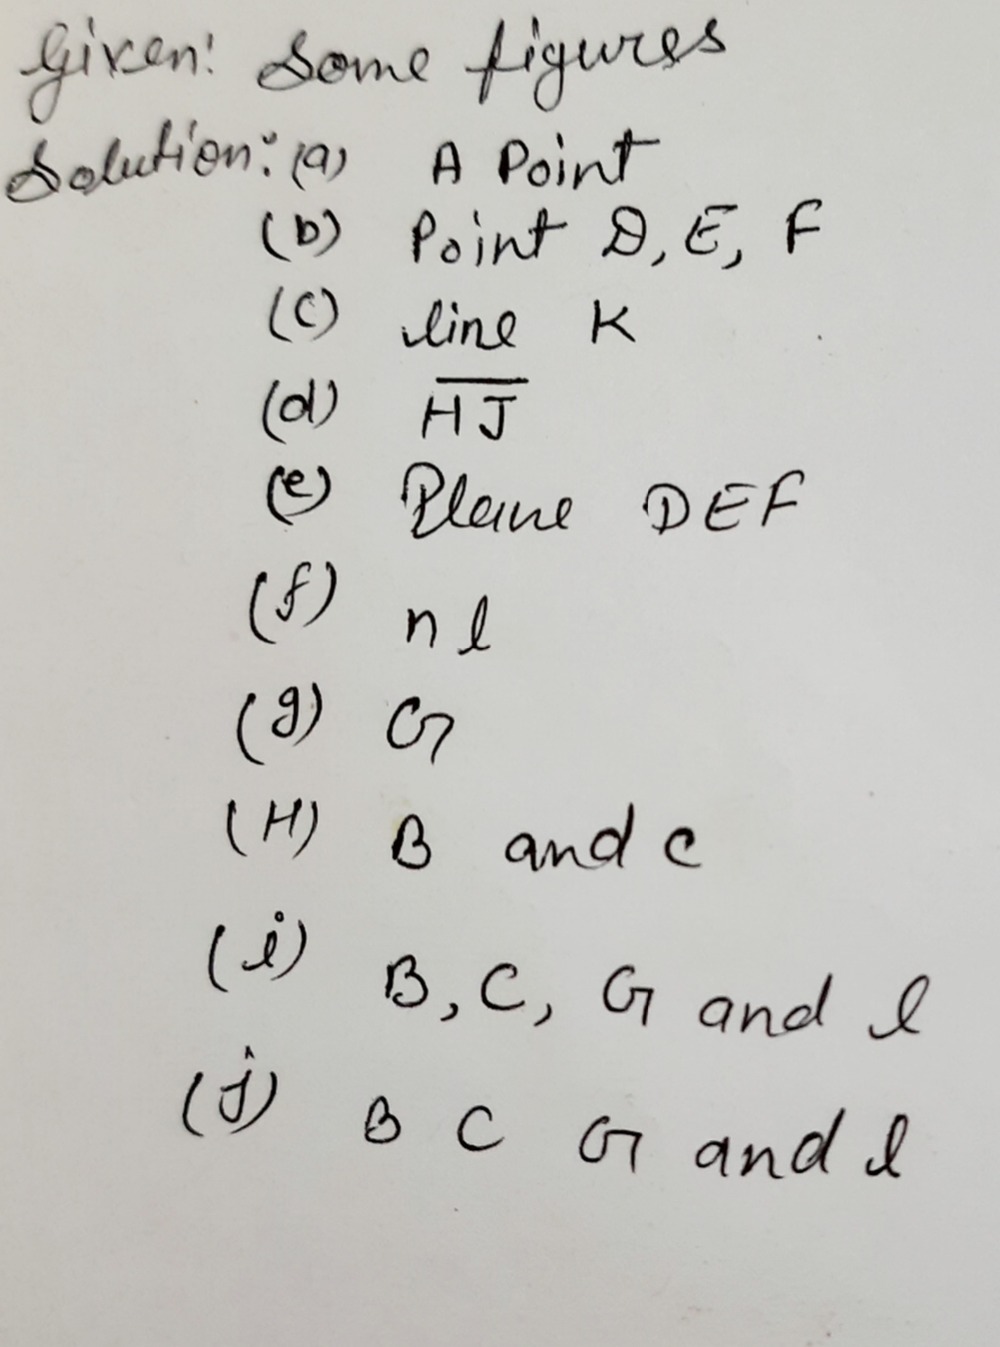 Given: Some figures
Solution: (a) A Point
(b) Point D, E, F
(c) line K
(d) H̅J̅
(e) Plane DEF
(f) n l
(g) G
(H) B and c
(i) B, C, G and l
(j) B C G and l